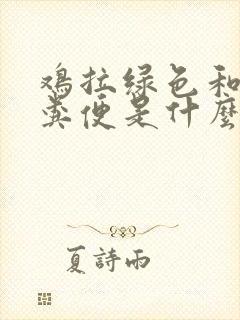 鸡拉绿色和
粪便是什麼
夏詩雨